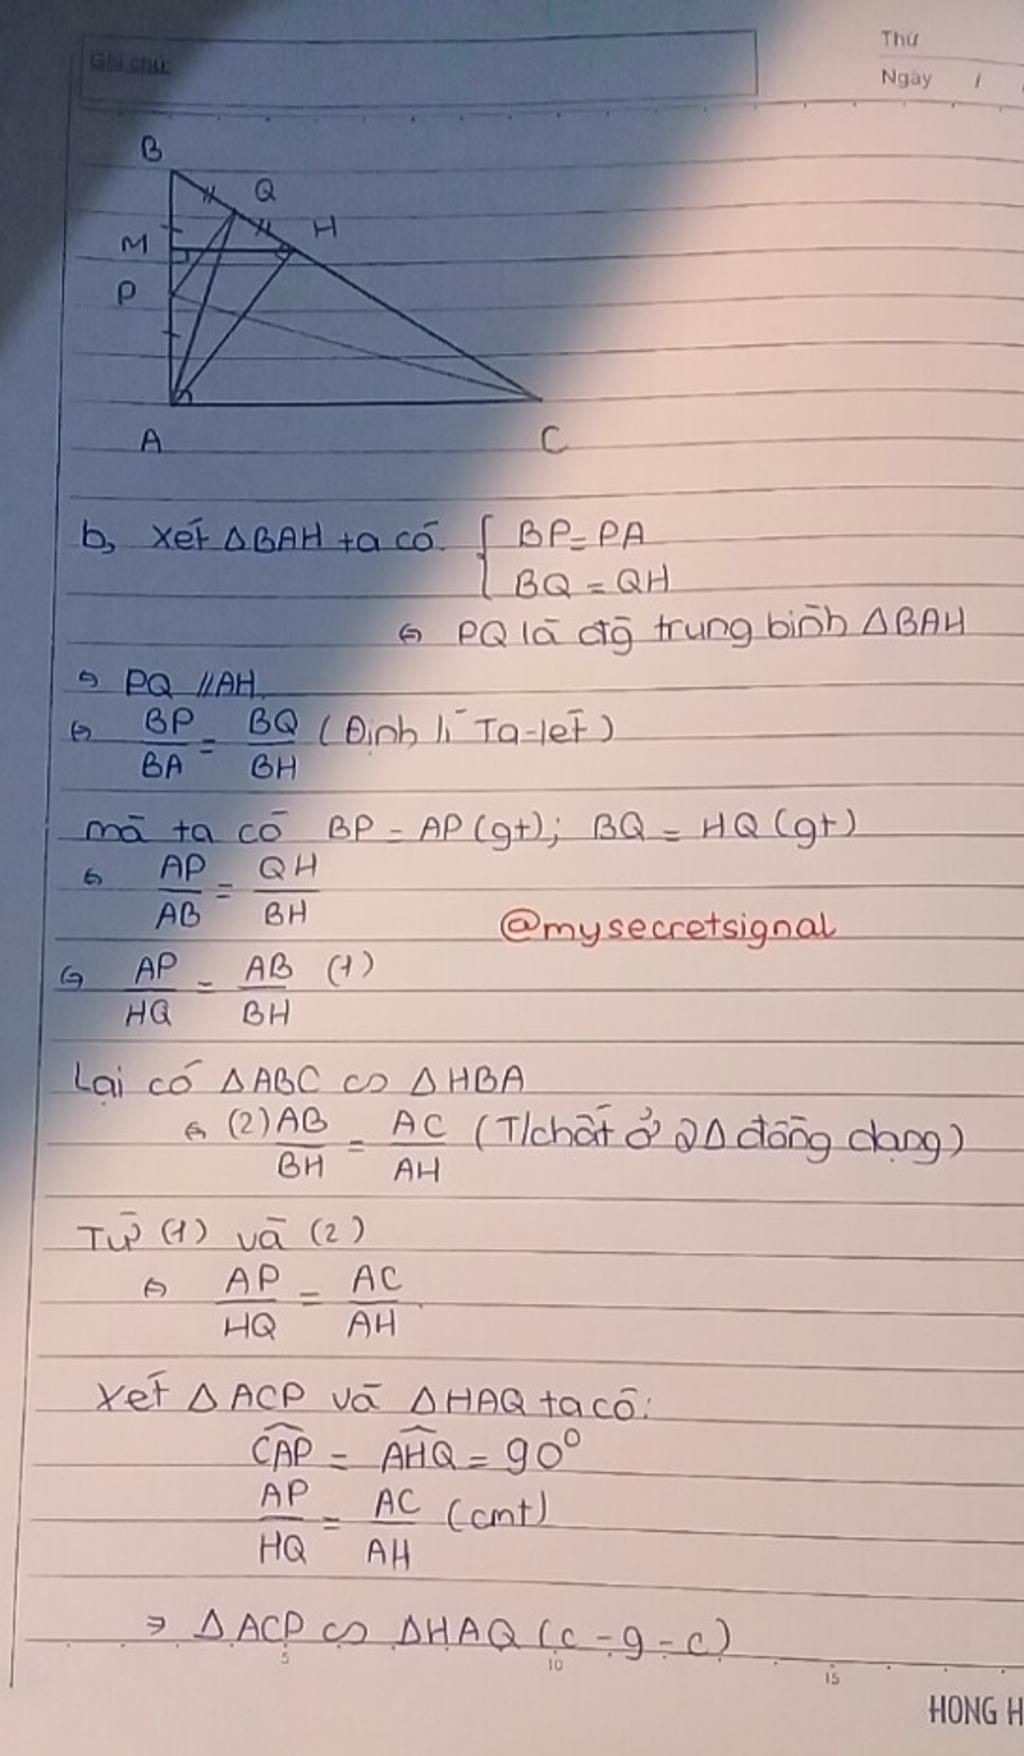 Ghi chú:
Thứ
Ngày /
B
Q
H
M
P
A
C
b, Xét ΔBAH ta có { BP = PA
BQ = QH
⇔ PQ là đg trung bình ΔBAH
⇒ PQ // AH.
⇔ BP/BA = BQ/BH (Định lí Ta-let)
mà ta có BP = AP (gt); BQ = HQ (gt)
⇔ AP/AB = QH/BH
@mysecretsignal
⇔ AP/HQ = AB/BH (1)
Lại có ΔABC ∽ ΔHBA
⇔ (2) AB/BH = AC/AH (T/chất ở 2Δ đồng dạng)
Từ (1) và (2)
⇔ AP/HQ = AC/AH.
Xét ΔACP và ΔHAQ ta có:
CAP = AHQ = 90°
AP/HQ = AC/AH (cmt)
⇒ ΔACP ∽ ΔHAQ (c-g-c)
5 10 15
HONG H